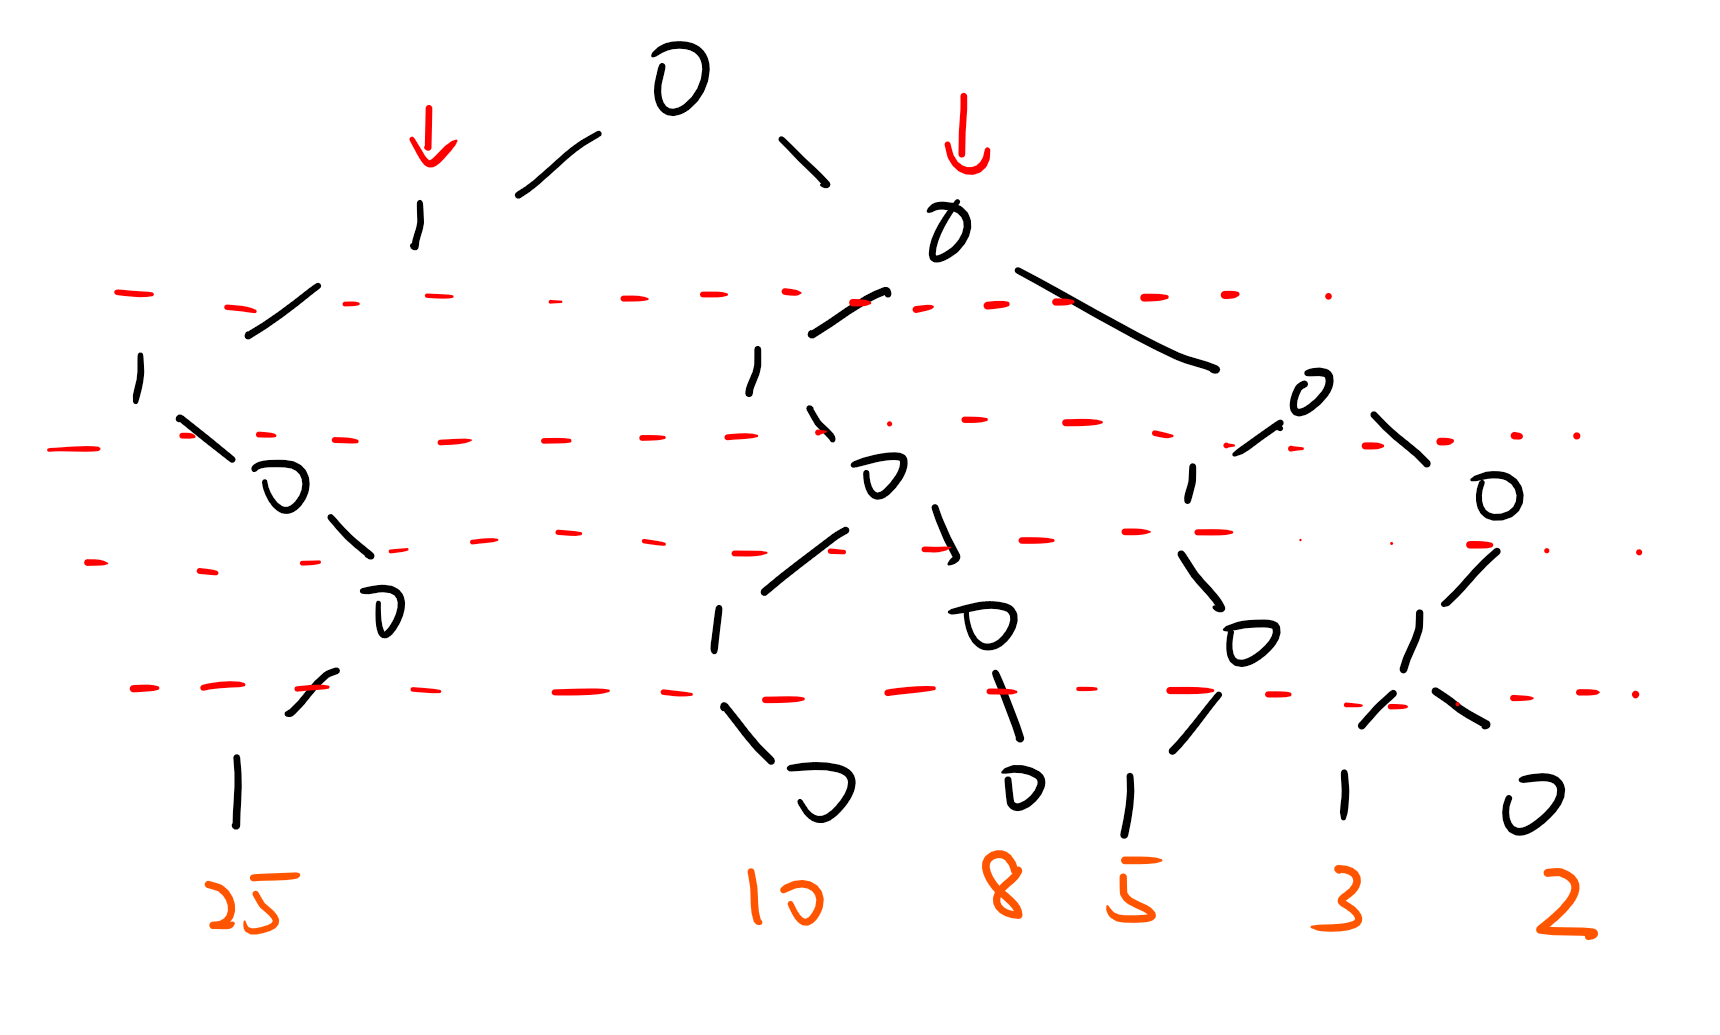 0
1 0
1 1 0
0 0 1 0
0 1 0 0 1
1 0 0 1 1 0
25 10 8 5 3 2